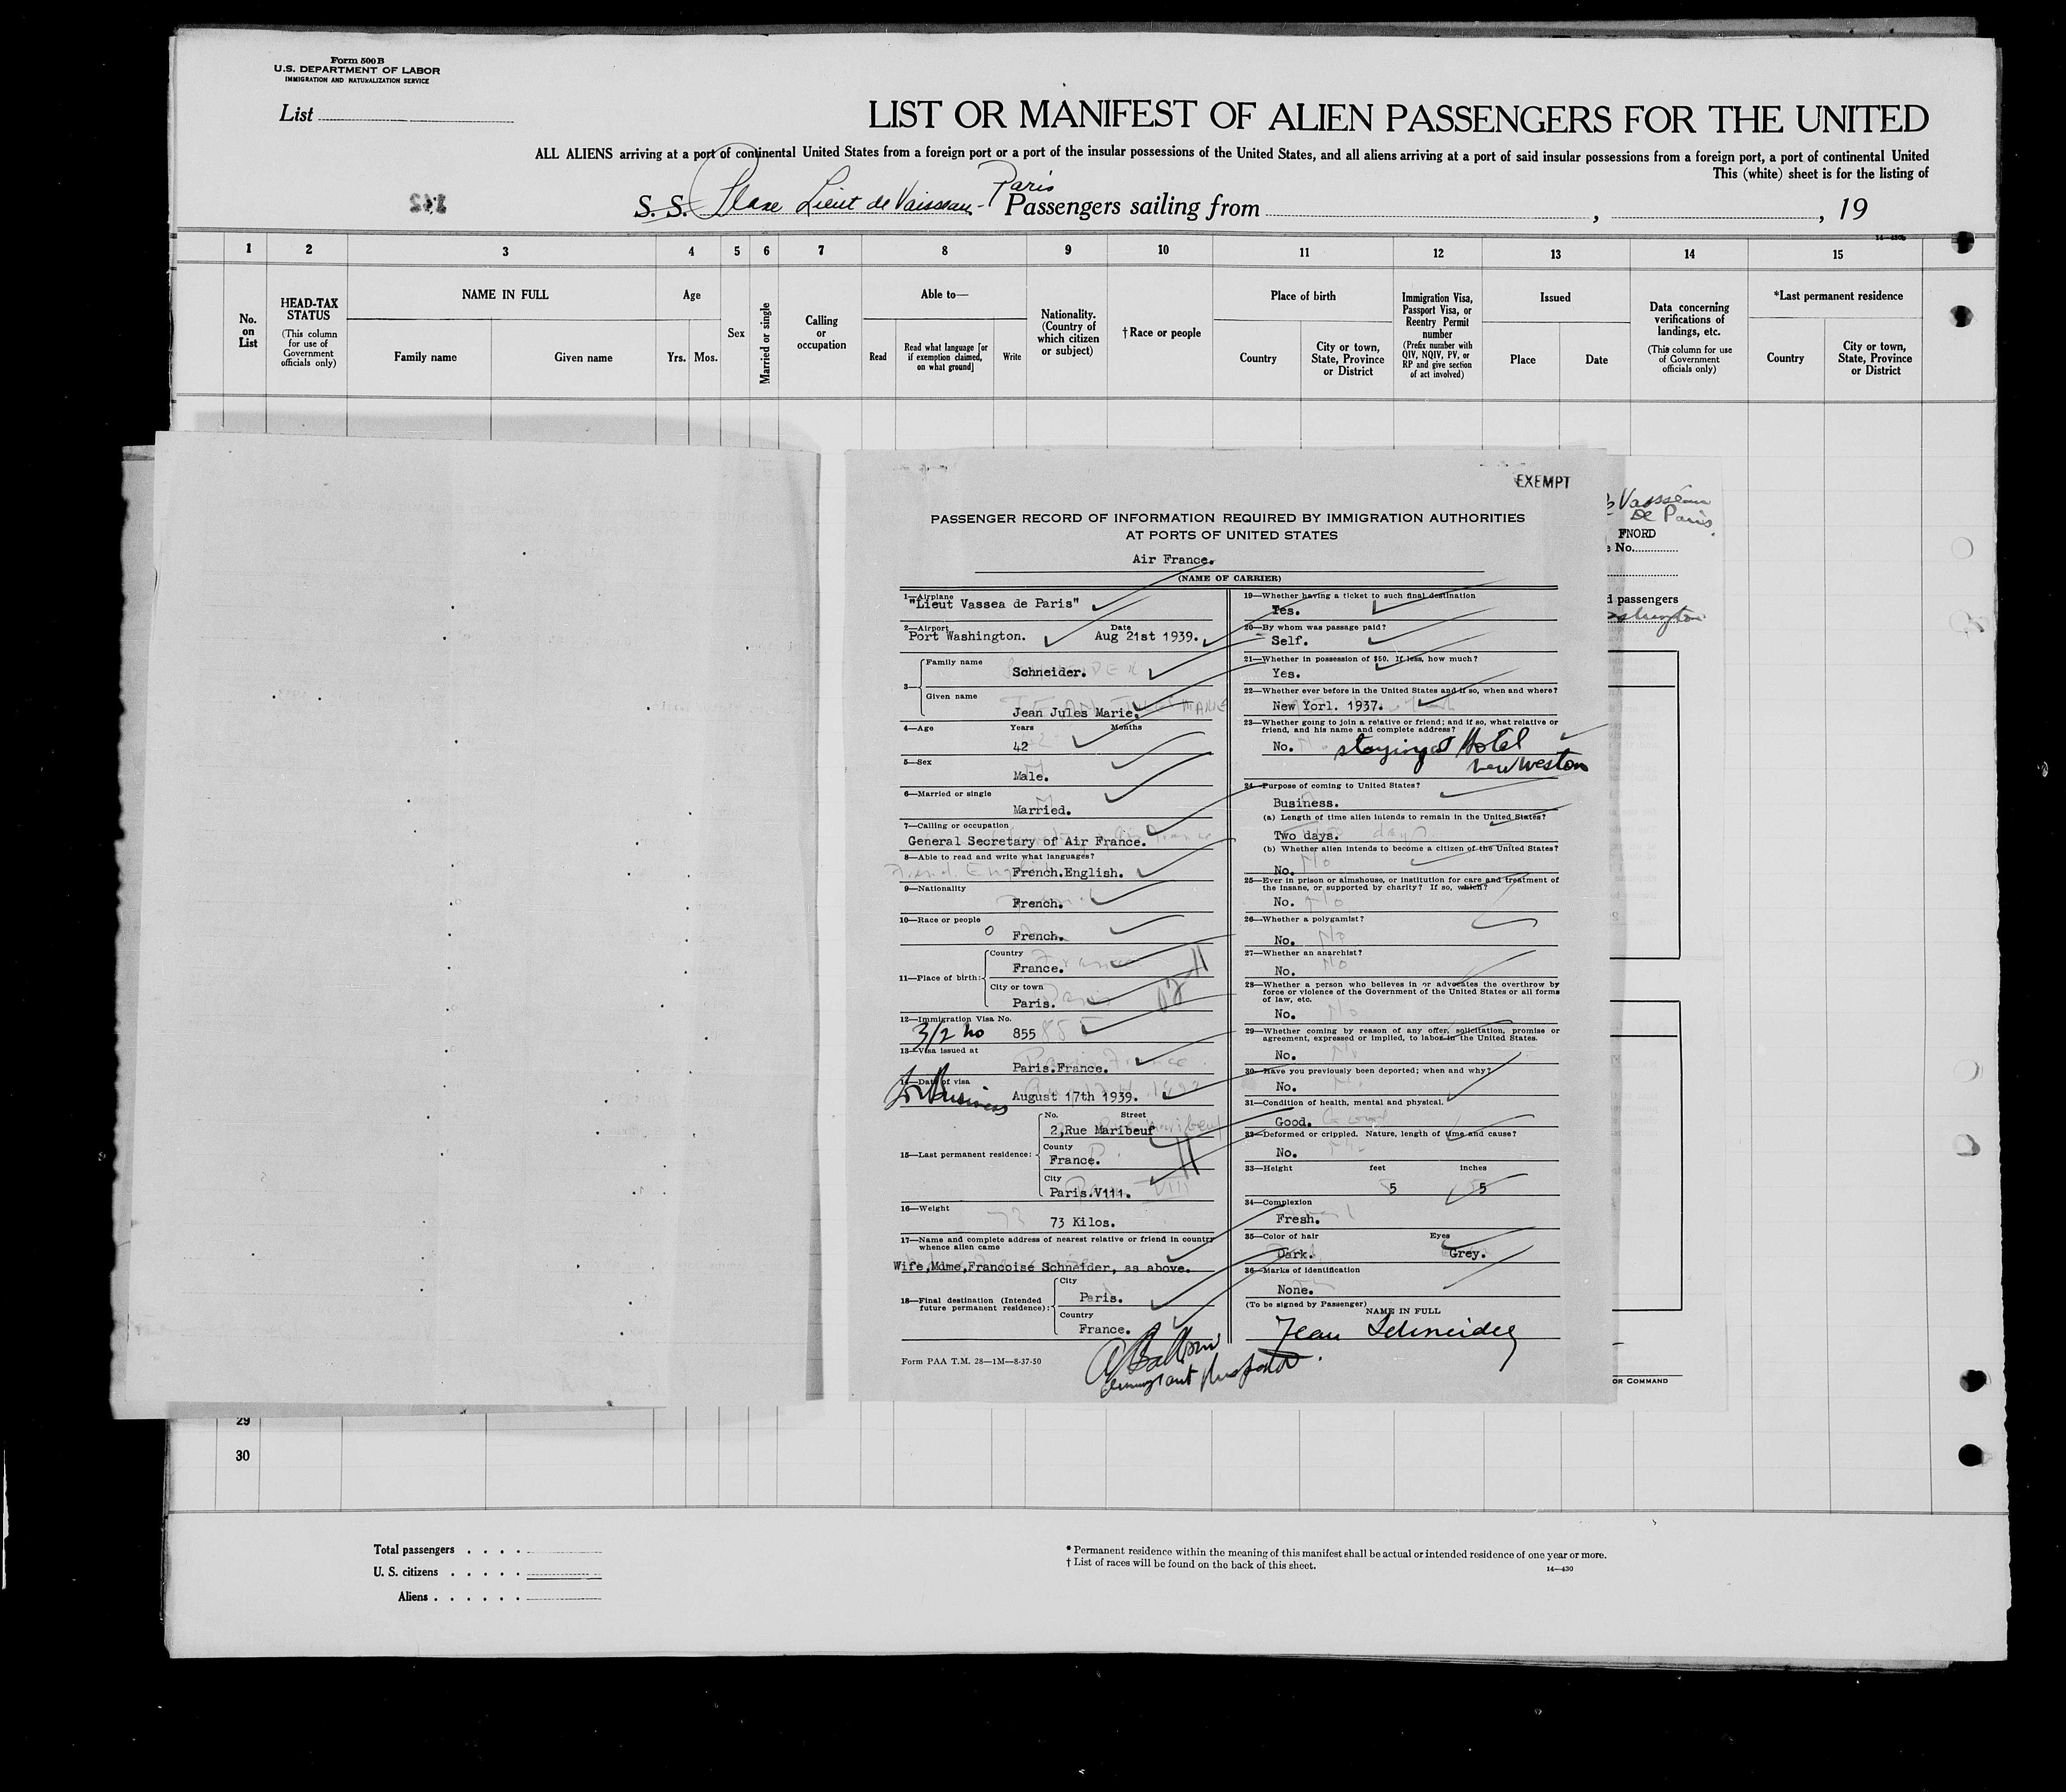 Form 500 B
U.S. DEPARTMENT OF LABOR
IMMIGRATION AND NATURALIZATION SERVICE
List
LIST OR MANIFEST OF ALIEN PASSENGERS FOR THE UNITED
ALL ALIENS arriving at a port of continental United States from a foreign port or a port of the insular possessions of the United States, and all aliens arriving at a port of said insular possessions from a foreign port, a port of continental United
This (white) sheet is for the listing of
S. S. Plane Lieut de Vaisseau - Paris Passengers sailing from , , 19
14—430b
1 2 3 4 5 6 7 8 9 10 11 12 13 14 15
No. on List
HEAD-TAX STATUS
(This column for use of Government officials only)
NAME IN FULL
Family name Given name
Age
Yrs. Mos.
Sex
Married or single
Calling or occupation
Able to—
Read
Read what language [or if exemption claimed, on what ground]
Write
Nationality. (Country of which citizen or subject)
†Race or people
Place of birth
Country
City or town, State, Province or District
Immigration Visa, Passport Visa, or Reentry Permit number
(Prefix number with QIV, NQIV, PV, or RP and give section of act involved)
Issued
Place Date
Data concerning verifications of landings, etc.
(This column for use of Government officials only)
*Last permanent residence
Country
City or town, State, Province or District
EXEMPT
PASSENGER RECORD OF INFORMATION REQUIRED BY IMMIGRATION AUTHORITIES
AT PORTS OF UNITED STATES
Air France.
(NAME OF CARRIER)
1—Airplane
"Lieut Vassea de Paris"
2—Airport Date
Port Washington. Aug 21st 1939.
3—
Family name
Schneider.
Given name
Jean Jules Marie.
4—Age Years Months
42
5—Sex
Male.
6—Married or single
Married.
7—Calling or occupation
General Secretary of Air France.
8—Able to read and write what languages?
French.English.
9—Nationality
French.
10—Race or people
French.
11—Place of birth:
Country
France.
City or town
Paris.
12—Immigration Visa No.
3/2 no 855
13—Visa issued at
Paris.France.
14—Date of visa
for Business August 17th 1939.
15—Last permanent residence:
No. Street
2,Rue Maribeuf
County
France.
City
Paris.V111.
16—Weight
73 Kilos.
17—Name and complete address of nearest relative or friend in country
whence alien came
Wife,Mdme,Francoise Schneider, as above.
18—Final destination (Intended
future permanent residence):
City
Paris.
Country
France.
Form PAA T.M. 28—1M—8-37-50
19—Whether having a ticket to such final destination
Yes.
20—By whom was passage paid?
Self.
21—Whether in possession of $50. If less, how much?
Yes.
22—Whether ever before in the United States and if so, when and where?
New Yorl. 1937.
23—Whether going to join a relative or friend; and if so, what relative or
friend, and his name and complete address?
No. staying at Hotel
New Weston
24—Purpose of coming to United States?
Business.
(a) Length of time alien intends to remain in the United States?
Two days.
(b) Whether alien intends to become a citizen of the United States?
No.
25—Ever in prison or almshouse, or institution for care and treatment of
the insane, or supported by charity? If so, which?
No.
26—Whether a polygamist?
No.
27—Whether an anarchist?
No.
28—Whether a person who believes in or advocates the overthrow by
force or violence of the Government of the United States or all forms
of law, etc.
No.
29—Whether coming by reason of any offer, solicitation, promise or
agreement, expressed or implied, to labor in the United States.
No.
30—Have you previously been deported; when and why?
No.
31—Condition of health, mental and physical.
Good.
32—Deformed or crippled. Nature, length of time and cause?
No.
33—Height feet inches
5 5
34—Complexion
Fresh.
35—Color of hair Eyes
Dark. Grey.
36—Marks of identification
None.
(To be signed by Passenger)
NAME IN FULL
Jean Schneider
Immigrant Inspector
Vasseau
De Paris.
FNORD
No.
passengers
OR COMMAND
29
30
Total passengers
U. S. citizens
Aliens
* Permanent residence within the meaning of this manifest shall be actual or intended residence of one year or more.
† List of races will be found on the back of this sheet.
14—430